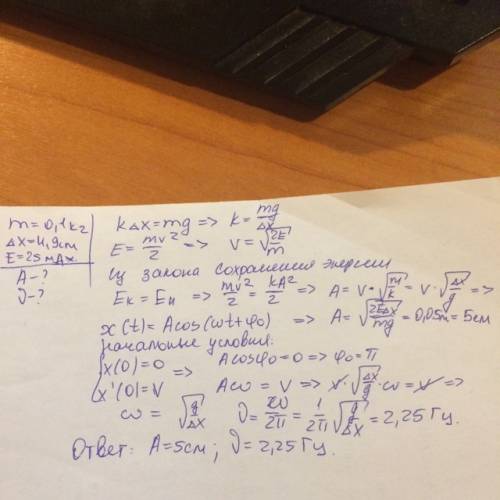 m = 0,1 кг
Δx = 4,9 см
E = 25 мДж
A - ?
ν - ?
kΔx = mg => k = mg/Δx
E = mv²/2 => v = √(2E/m)
Из закона сохранения энергии
Eк = Eп => mv²/2 = kA²/2 => A = v·√(m/k) = v·√(Δx/g) =>
x(t) = Acos(ωt+φ₀) => A = √(2EΔx/mg) = 0,05м = 5см
начальные условия:
{x(0) = 0 => Acosφ₀ = 0 => φ₀ = π
{x'(0) = v Aω = v => v·√(Δx/g)·ω = v =>
ω = √(g/Δx) ν = ω/2π = 1/2π √(g/Δx) = 2,25 Гц
Ответ: A = 5см; ν = 2,25 Гц.